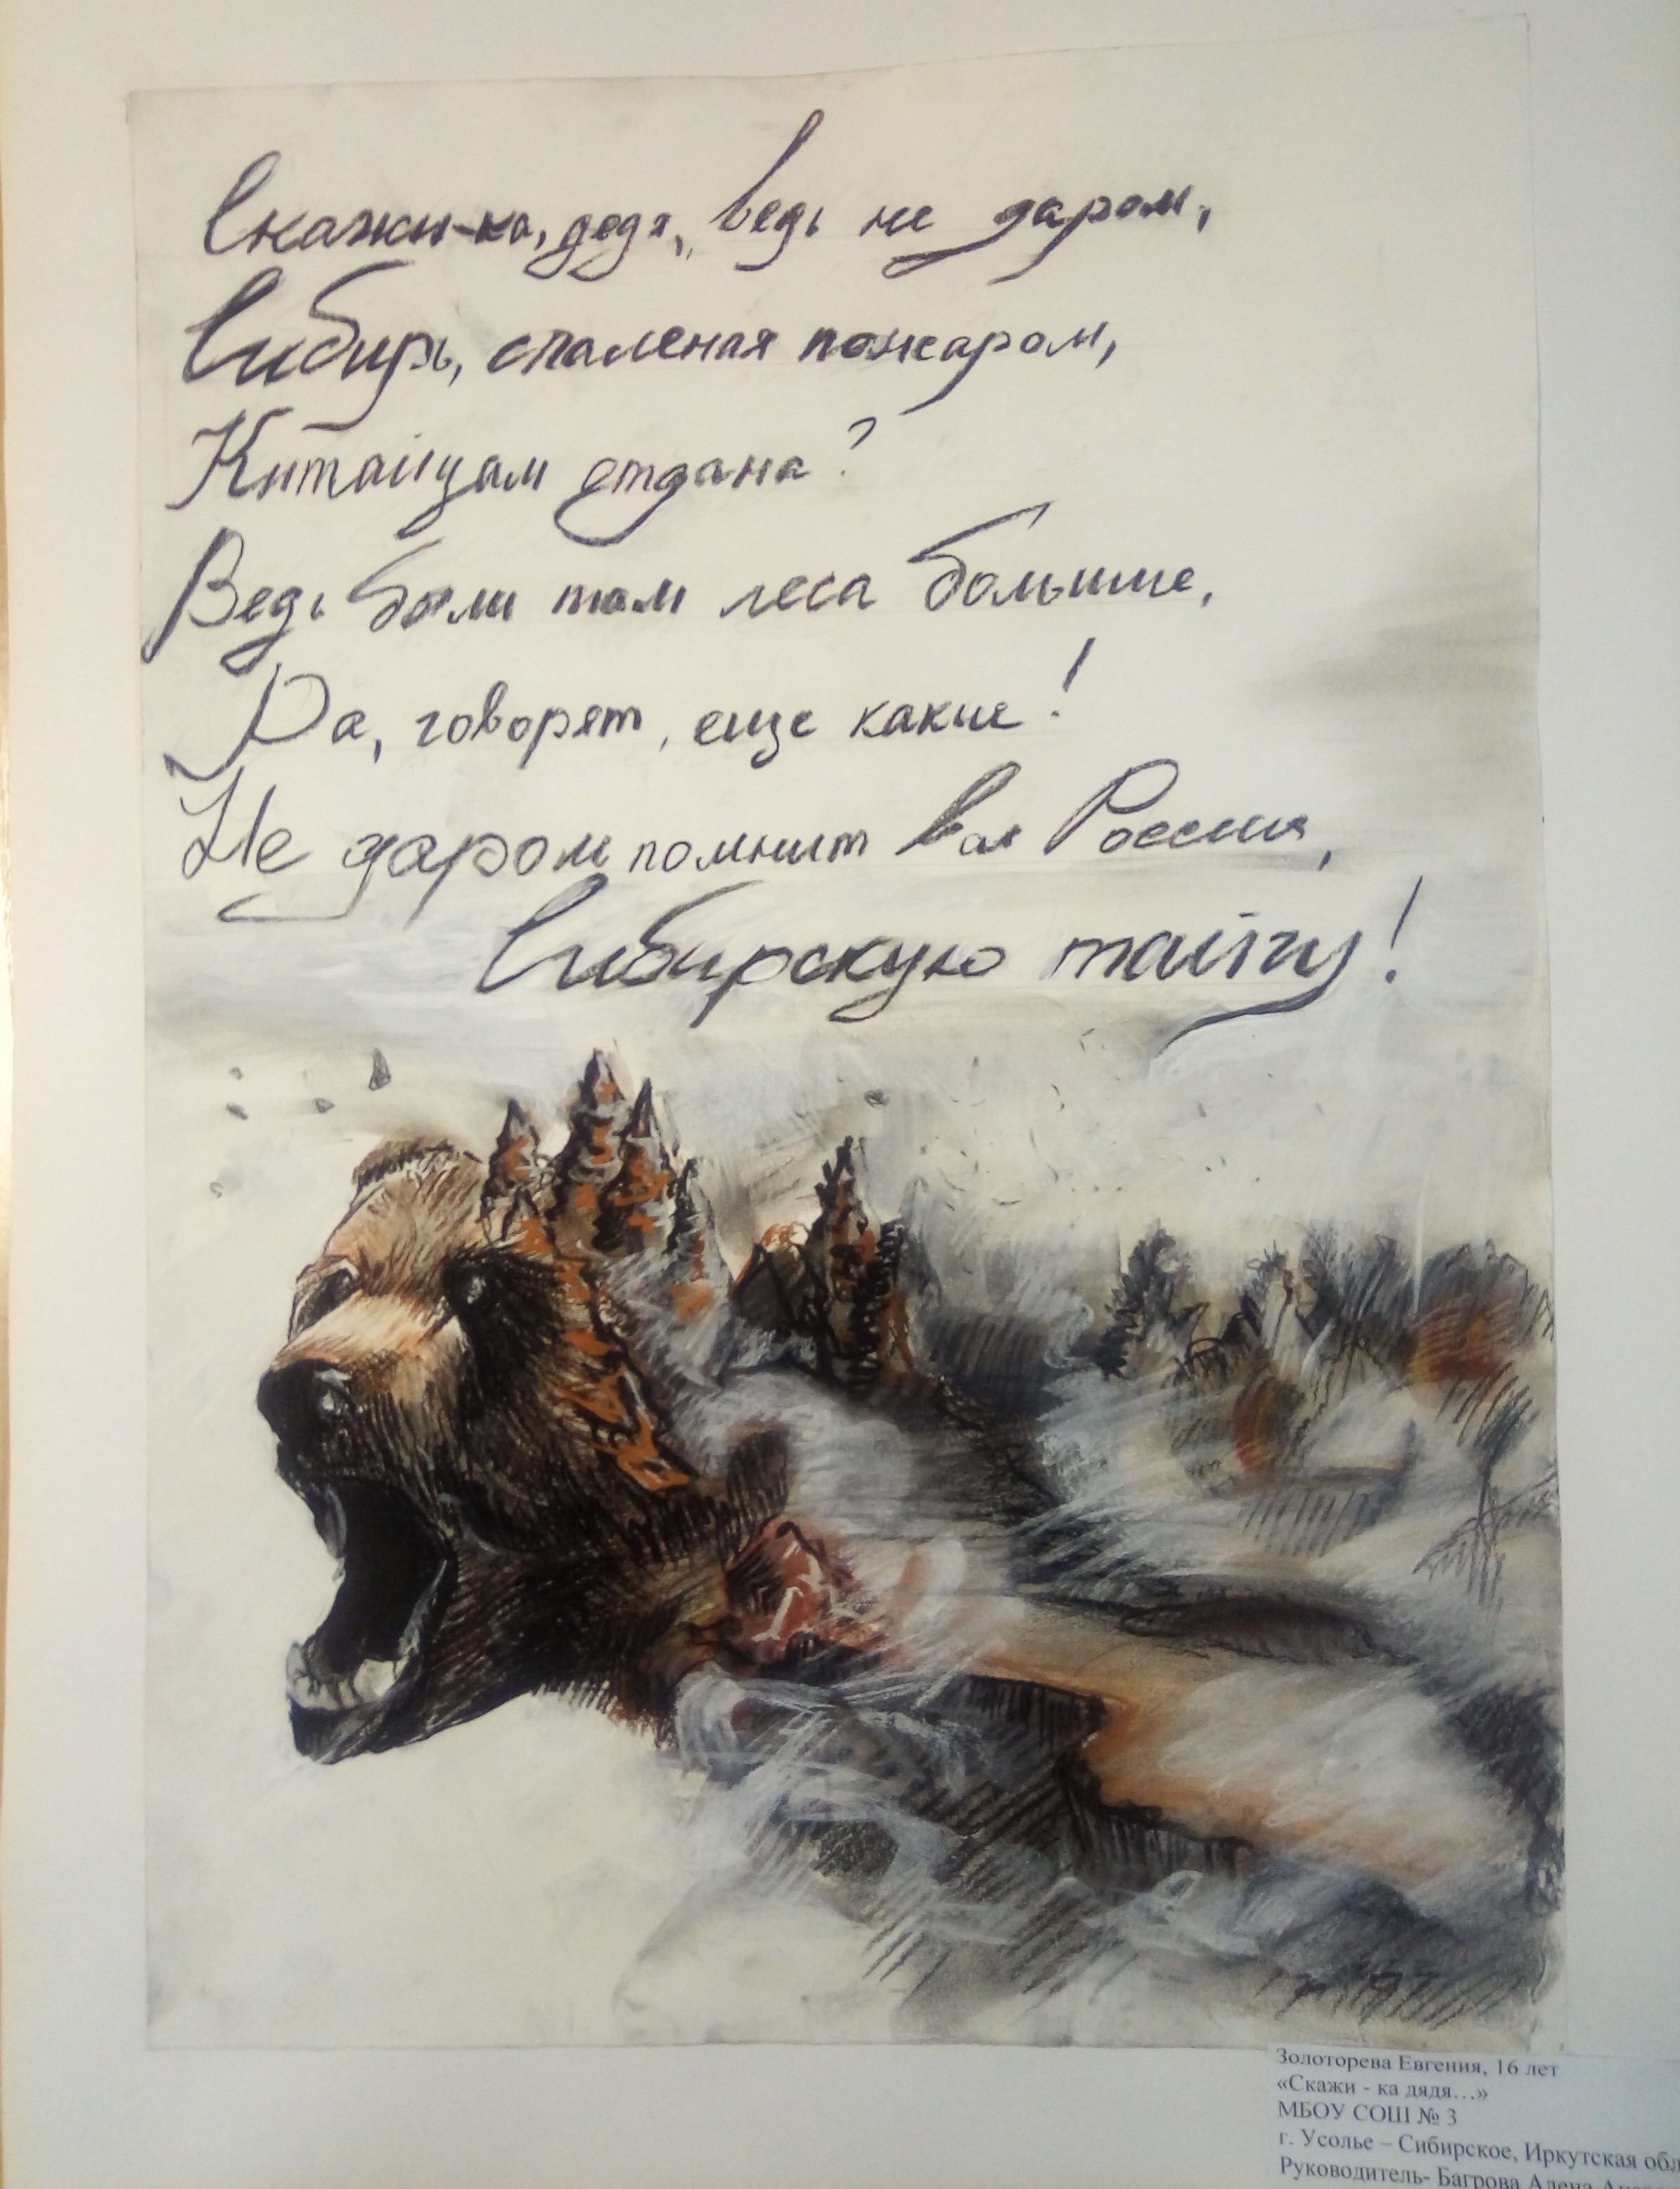 Скажи-ка, дядя, ведь не даром,
Сибирь, спаленая пожаром,
Китайцам отдана?
Ведь были там леса больше,
Да, говорят, еще какие!
Не даром помнит вся Россия,
Сибирскую тайгу!
Золоторева Евгения, 16 лет
«Скажи - ка дядя…»
МБОУ СОШ № 3
г. Усолье – Сибирское, Иркутская обл
Руководитель- Багрова Алена